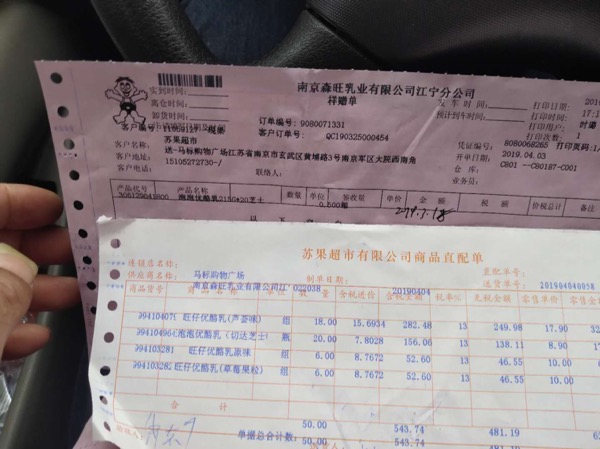 南京森旺乳业有限公司江宁分公司
样赠单
实到时间:
离仓时间:
卸货时间:
发车时间:
打印日期: 201
打印时间: 17:1
打印用户: 封
打印次数: 1
订单编号: 9080071331
客户订单: QC190325000454
凭证编号: 8080068265 打印页码:1/
开单日期: 2019.04.03
仓库: C801 --C80187-C001
业务员:
客户编号: 11
客户名称: 苏果超市
客户地址: 送-马标购物广场江苏省南京市玄武区黄埔路3号南京军区大院西南角
15105272730-/
联络人:
产品代号 产品名 数量 单位 签收量 单价 金额 税额 价税总计 备注
泡泡优酪乳215G*20芝士 0.500箱
以下
苏果超市有限公司商品直配单
连锁店名: 马标购物广场
直配单号:
供应商名称: 南京森旺乳业有限公司江
032038
制单日期: 20190404
送货单号: 201904040058
商品货号 商品名称 单位 数量 含税进价 含税金额 税率% 无税金额 零售单价 零售金
99410407 旺仔优酪乳(芦荟味) 组 18.00 15.6934 282.48 13 249.98 17.90 32
99410496 泡泡优酪乳(切达芝士 瓶 20.00 7.8028 156.06 13 138.11 8.90 17
994103281 旺仔优酪乳原味 组 6.00 8.7672 52.60 13 46.55 10.00
994103282 旺仔优酪乳(草莓果粒) 组 6.00 8.7672 52.60 13 46.55 10.00
合计 50.00 543.74 481.19
单据总合计数: 50.00 543.74 481.19